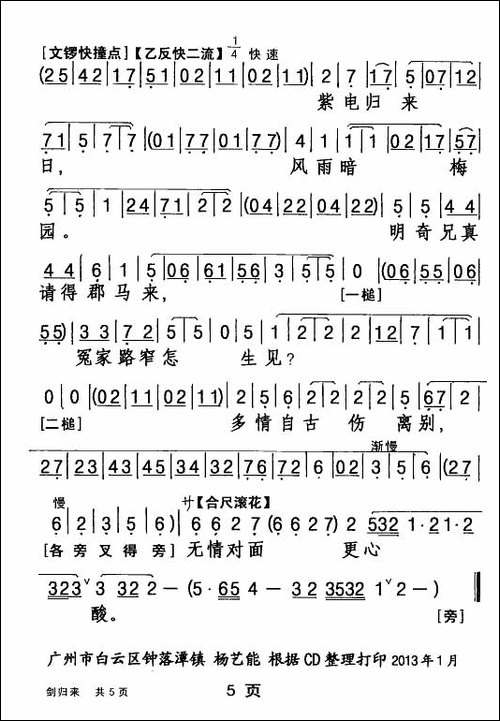 [文锣快撞点]【乙反快二流】1/4 快速
(25|42|17|51|02|11|02|11)|2|7|(17)|5|07|12|
紫电归来
71|5|77|(01|77|01|77)|4|4|4|4|02|17|(57)|
日，风雨暗梅
5|5|1|24|71|2 2|(04|22|04|22)|5|5|4 4|
园。明奇兄真
4 4|6|1|5|06|61|56|3|5 5|0|(06|55|06|
请得郡马来，[一槌]
55)|3 3|7 2|5 5|0 5|1|2 2|2 2|12|7|1 1|
冤家路窄怎生见？
0|0|(02|11|02|11)|2|2 6|2 2|2|6|67|2|
[二槌]多情自古伤离别，
渐慢
27|23|43|34|32|76|72|6|02|3|5|6|(27|
慢 廾【合尺滚花】
6|2|3|5|7)|6 6 2 7 (6 6 2 7) 2 532 1·21·21
[各旁叉得旁]无情对面更心
323 ˇ 3 322 2 — (5·65 4 — 32 3532 1 ˇ 2 —)
酸。[旁]
广州市白云区钟落潭镇 杨艺能 根据CD整理打印2013年1月
剑归来 共5页 5 页